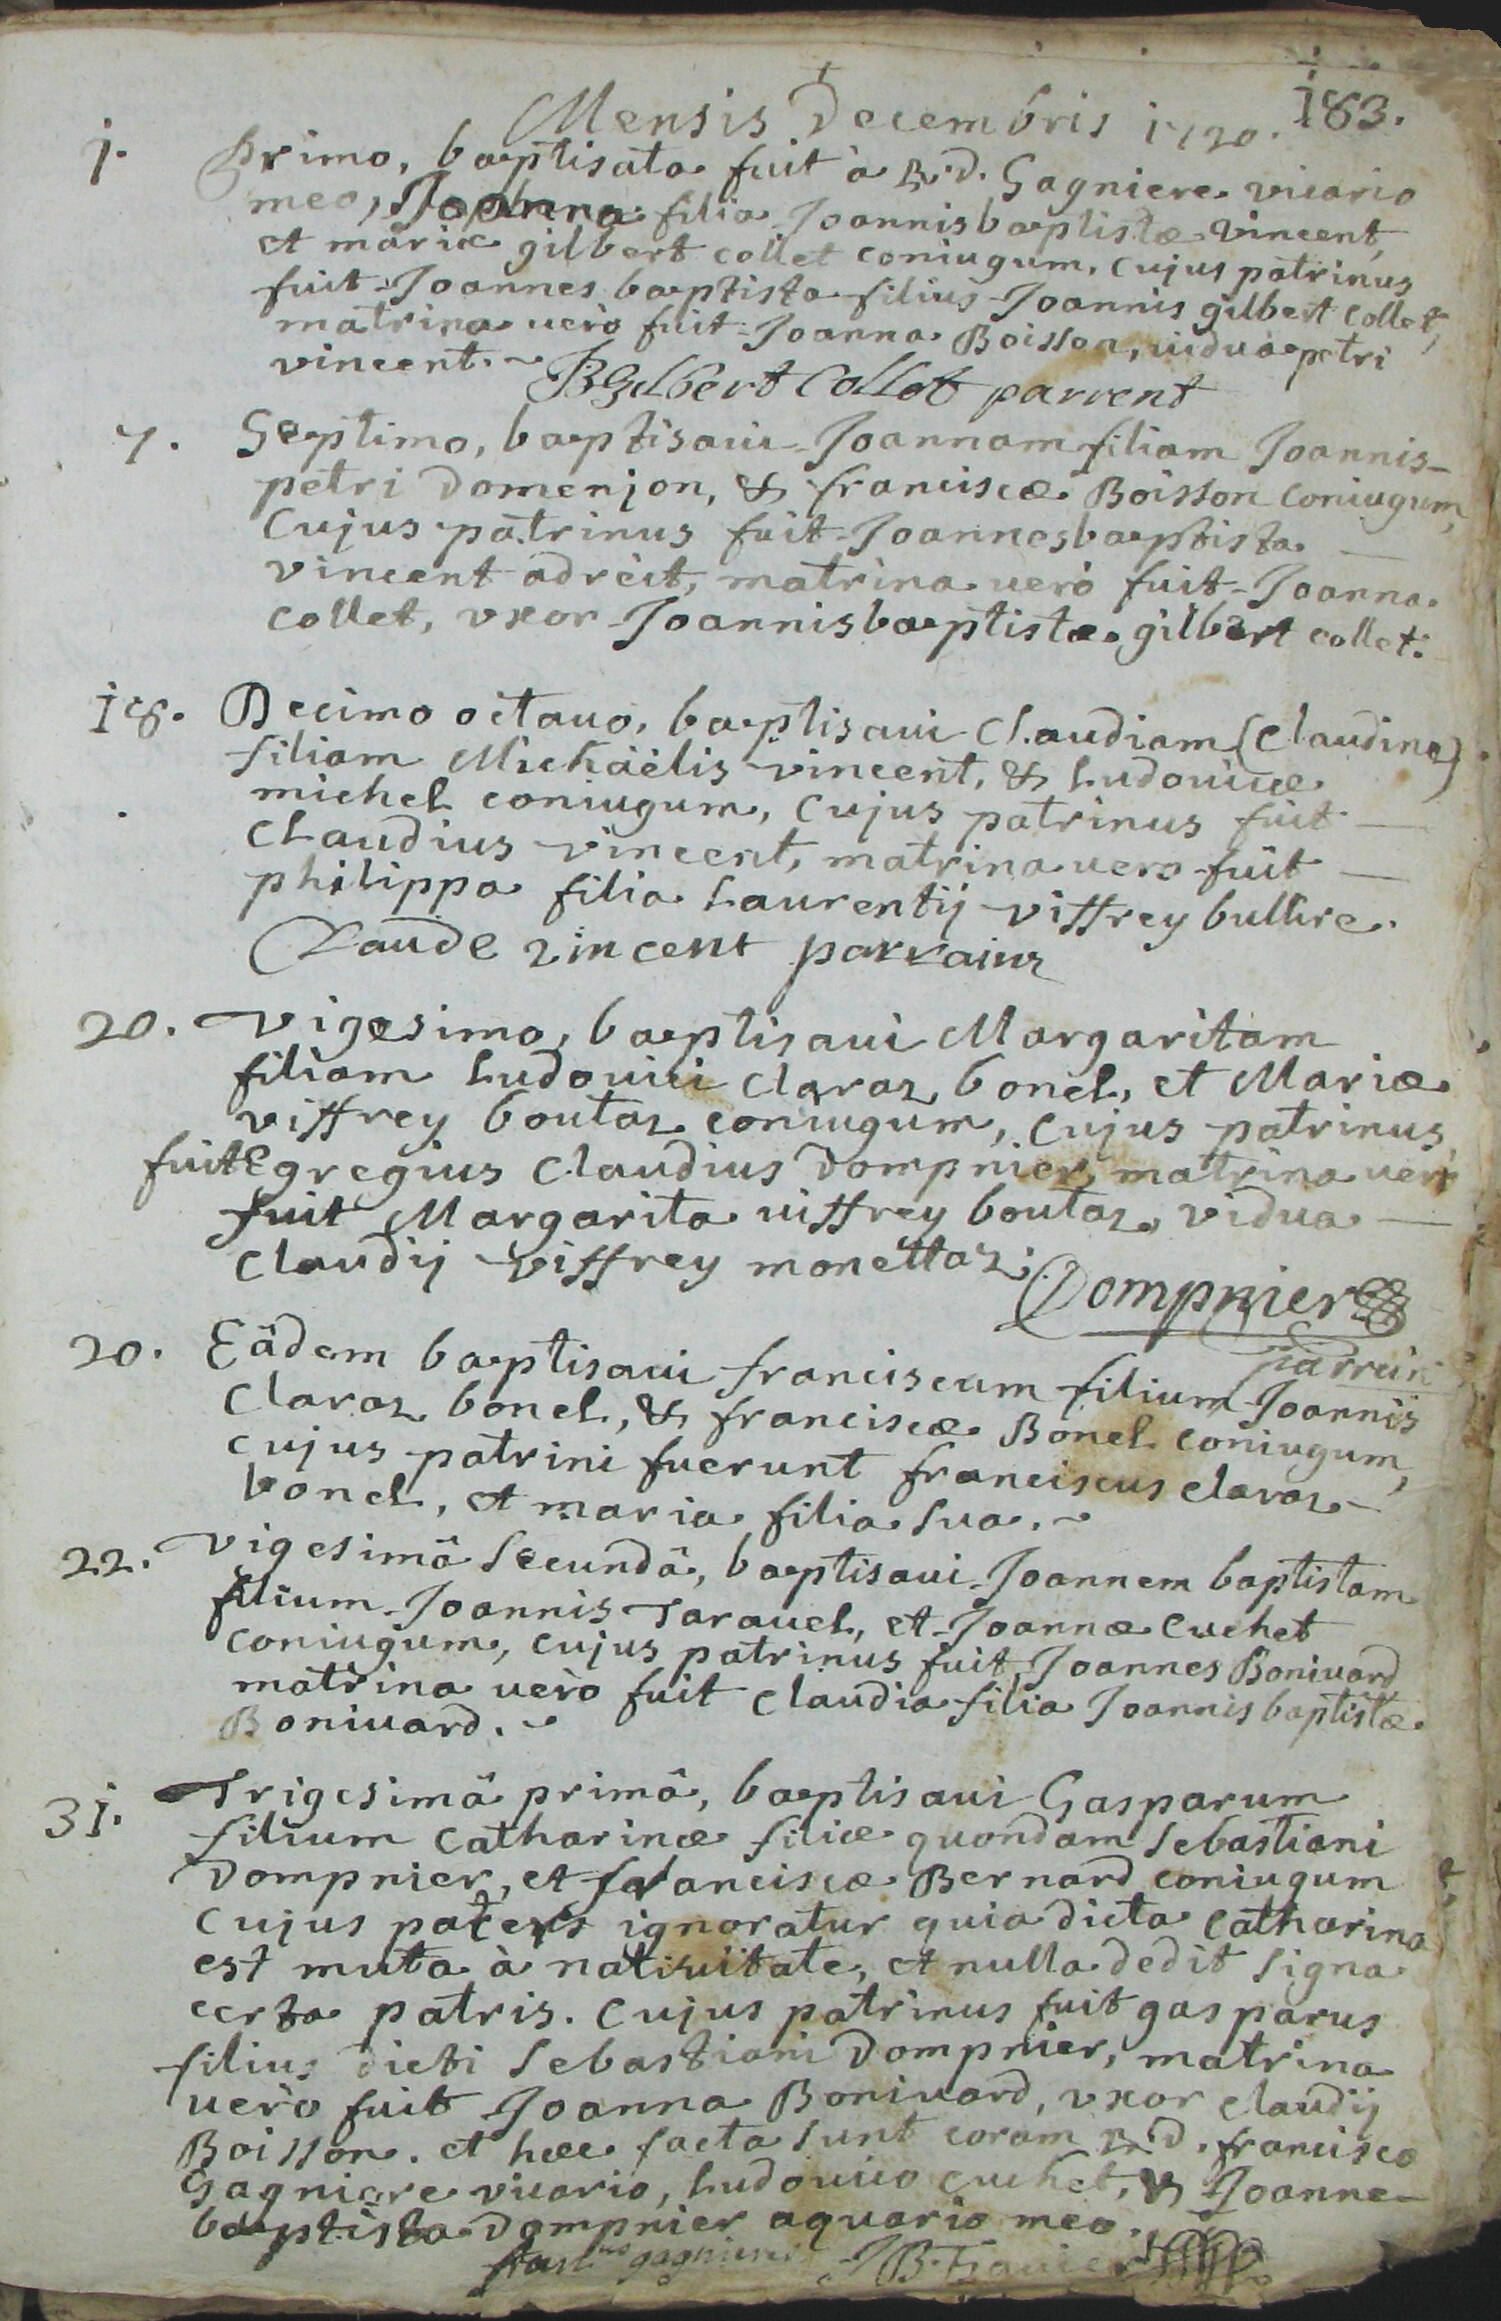 Mensis Decembris 1720. 183.
1. Primo, baptisata fuit à R.D. Gagniere vicario
meo, Joanna filia Joannisbaptistæ vincent,
et mariæ gilbert collet coniugum, cujus patrinus
fuit Joannes baptista filius Joannis gilbert collet,
matrina uerò fuit Joanna Boisson, uidua petri
vincent. ~
JBGilbert Collet parrent
7. Septimo, baptisaui Joannam filiam Joannis-
petri Domenjon, & franciscæ Boisson coniugum,
cujus patrinus fuit Joannesbaptista —
vincent adreit, matrina uerò fuit Joanna
collet, vxor Joannisbaptistæ gilbert collet.
18. Decimo octauo, baptisaui Claudiam (Claudine)
filiam Michäelis vincent, & Ludouicæ
michel coniugum, cujus patrinus fuit —
Claudius vincent, matrina uero fuit —
philippa filia Laurentij viffrey bullire.
Claude vincent parrains
20. Vigesimo, baptisaui Margaritam
filiam Ludouici claraz bonel, et Mariæ
viffrey boutaz coniugum, cujus patrinus
fuit Egregius Claudius Dompnier, matrina uerò
fuit Margarita uiffrey boutaz, vidua —
Claudij viffrey monettaz.
Dompnier
parrein
20. Eâdem baptisaui franciscum filium Joannis
Claraz bonel, & franciscæ Bonel coniugum,
cujus patrini fuerunt franciscus claraz-
bonel, et maria filia sua. ~
22. Vigesimâ secundâ, baptisaui Joannem baptistam
filium Joannis Tarauel, et Joannæ Cuchet
coniugum, cujus patrinus fuit Joannes Boniuard
matrina uèrò fuit Claudia filia Joannis baptistæ
Boniuard. ~
31. Trigesimâ primâ, baptisaui Gasparum
filium Catharinæ filiæ quondam Sebastiani
Dompnier, et franciscæ Bernard coniugum
cujus pater ignoratur quia dicta Catharina
est muta à natiuitate, et nulla dedit signa
certa patris. Cujus patrinus fuit gasparus
filius dicti Sebastiani Dompnier, matrina
uèrò fuit Joanna Boniuard, vxor Claudij
Boisson. et hæc facta sunt coram R.D. francisco
Gagniere vicario, Ludouico cuchet, & Joanne-
baptista Dompnier aquario meo.
gagniere